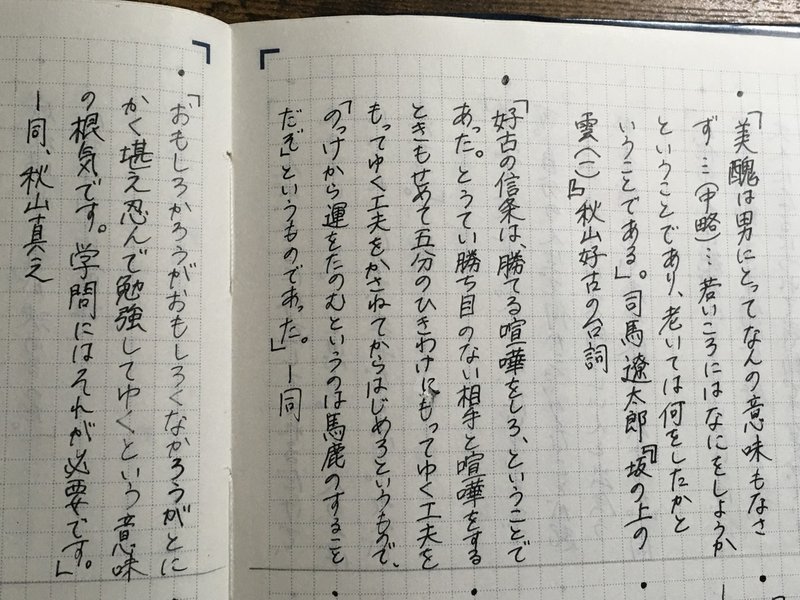 「美醜は男にとってなんの意味もなさ
ず…(中略)…若いころにはなにをしようか
ということであり、老いては何をしたかと
いうことである。」司馬遼太郎『坂の上の
雲(一)』秋山好古の台詞
「好古の信条は、勝てる喧嘩をしろ、ということで
あった。とうてい勝ち目のない相手と喧嘩をする
ときもせめて五分のひきわけにもってゆく工夫を
もってゆく工夫をかさねてからはじめろというもので、
「のっけから運をたのむというのは馬鹿のすること
だぞ」というものであった。」ー同
「おもしろかろうがおもしろくなかろうがとに
かく堪え忍んで勉強してゆくという意味
の根気です。学問にはそれが必要です。」
ー同、秋山真之